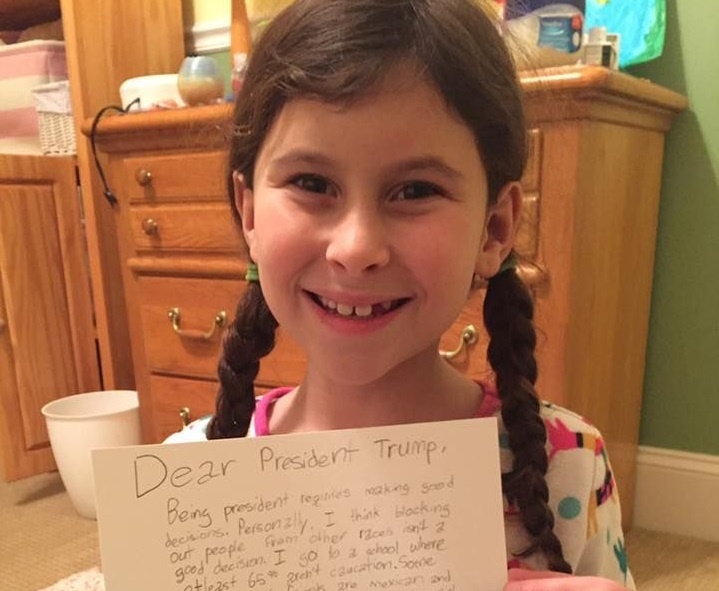 Dear President Trump,
Being president requires making good
decisions. Personally, I think blocking
out people from other races isn't a
good decision. I go to a school where
atleast 65% aren't caucation. Some
are mexican and